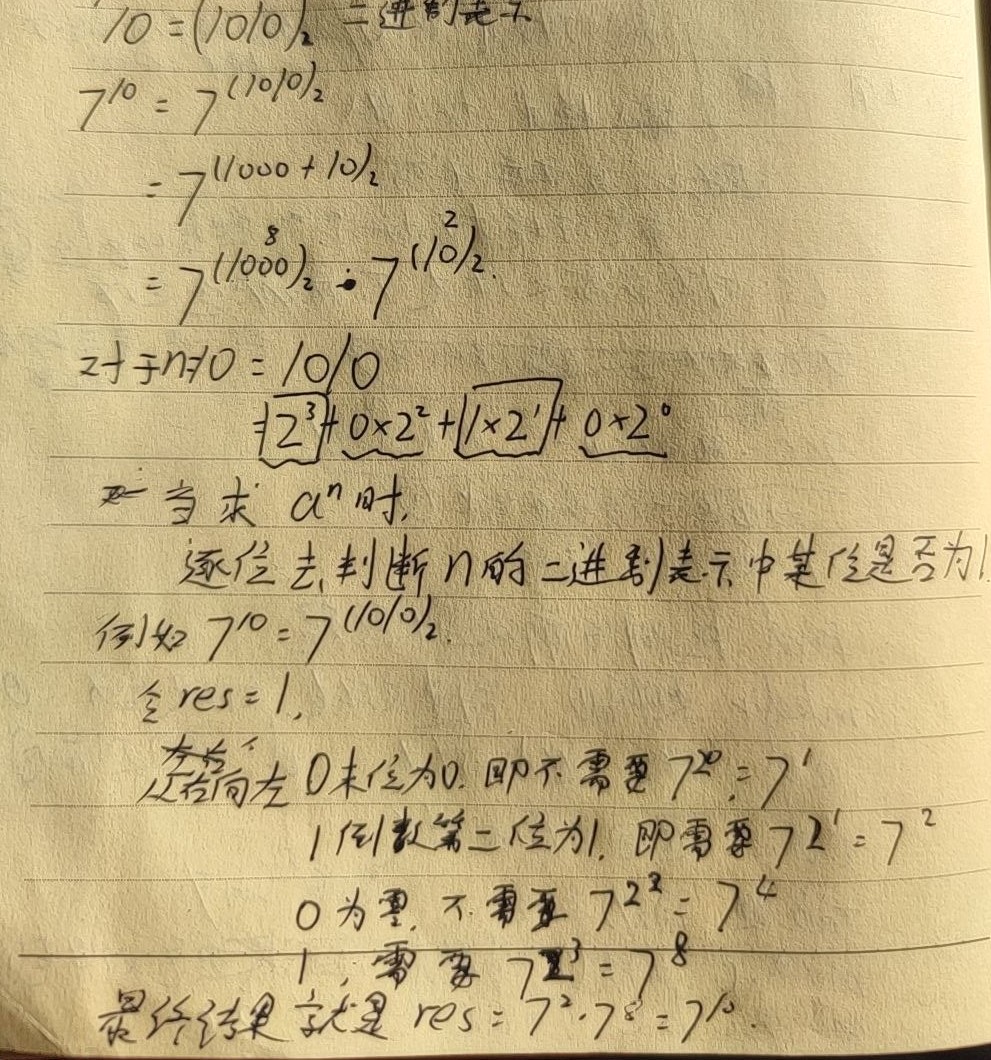 10 = (1010)₂ 二进制表示
7¹⁰ = 7^(1010)₂
= 7^(1000 + 10)₂
8 2
= 7^(1000)₂ · 7^(10)₂.
对于n=10 = 1010
= 2³ + 0×2² + 1×2¹ + 0×2⁰
当求 aⁿ 时,
逐位去判断 n 的二进制表示中某位是否为1.
例如 7¹⁰ = 7^(1010)₂.
令 res = 1,
从右向左 0 末位为0. 即不需要 7^2⁰ = 7¹
1 倒数第二位为1. 即需要 7^2¹ = 7²
0 为零. 不需要 7^2² = 7⁴
1, 需要 7^2³ = 7⁸
最终结果就是 res = 7² · 7⁸ = 7¹⁰.